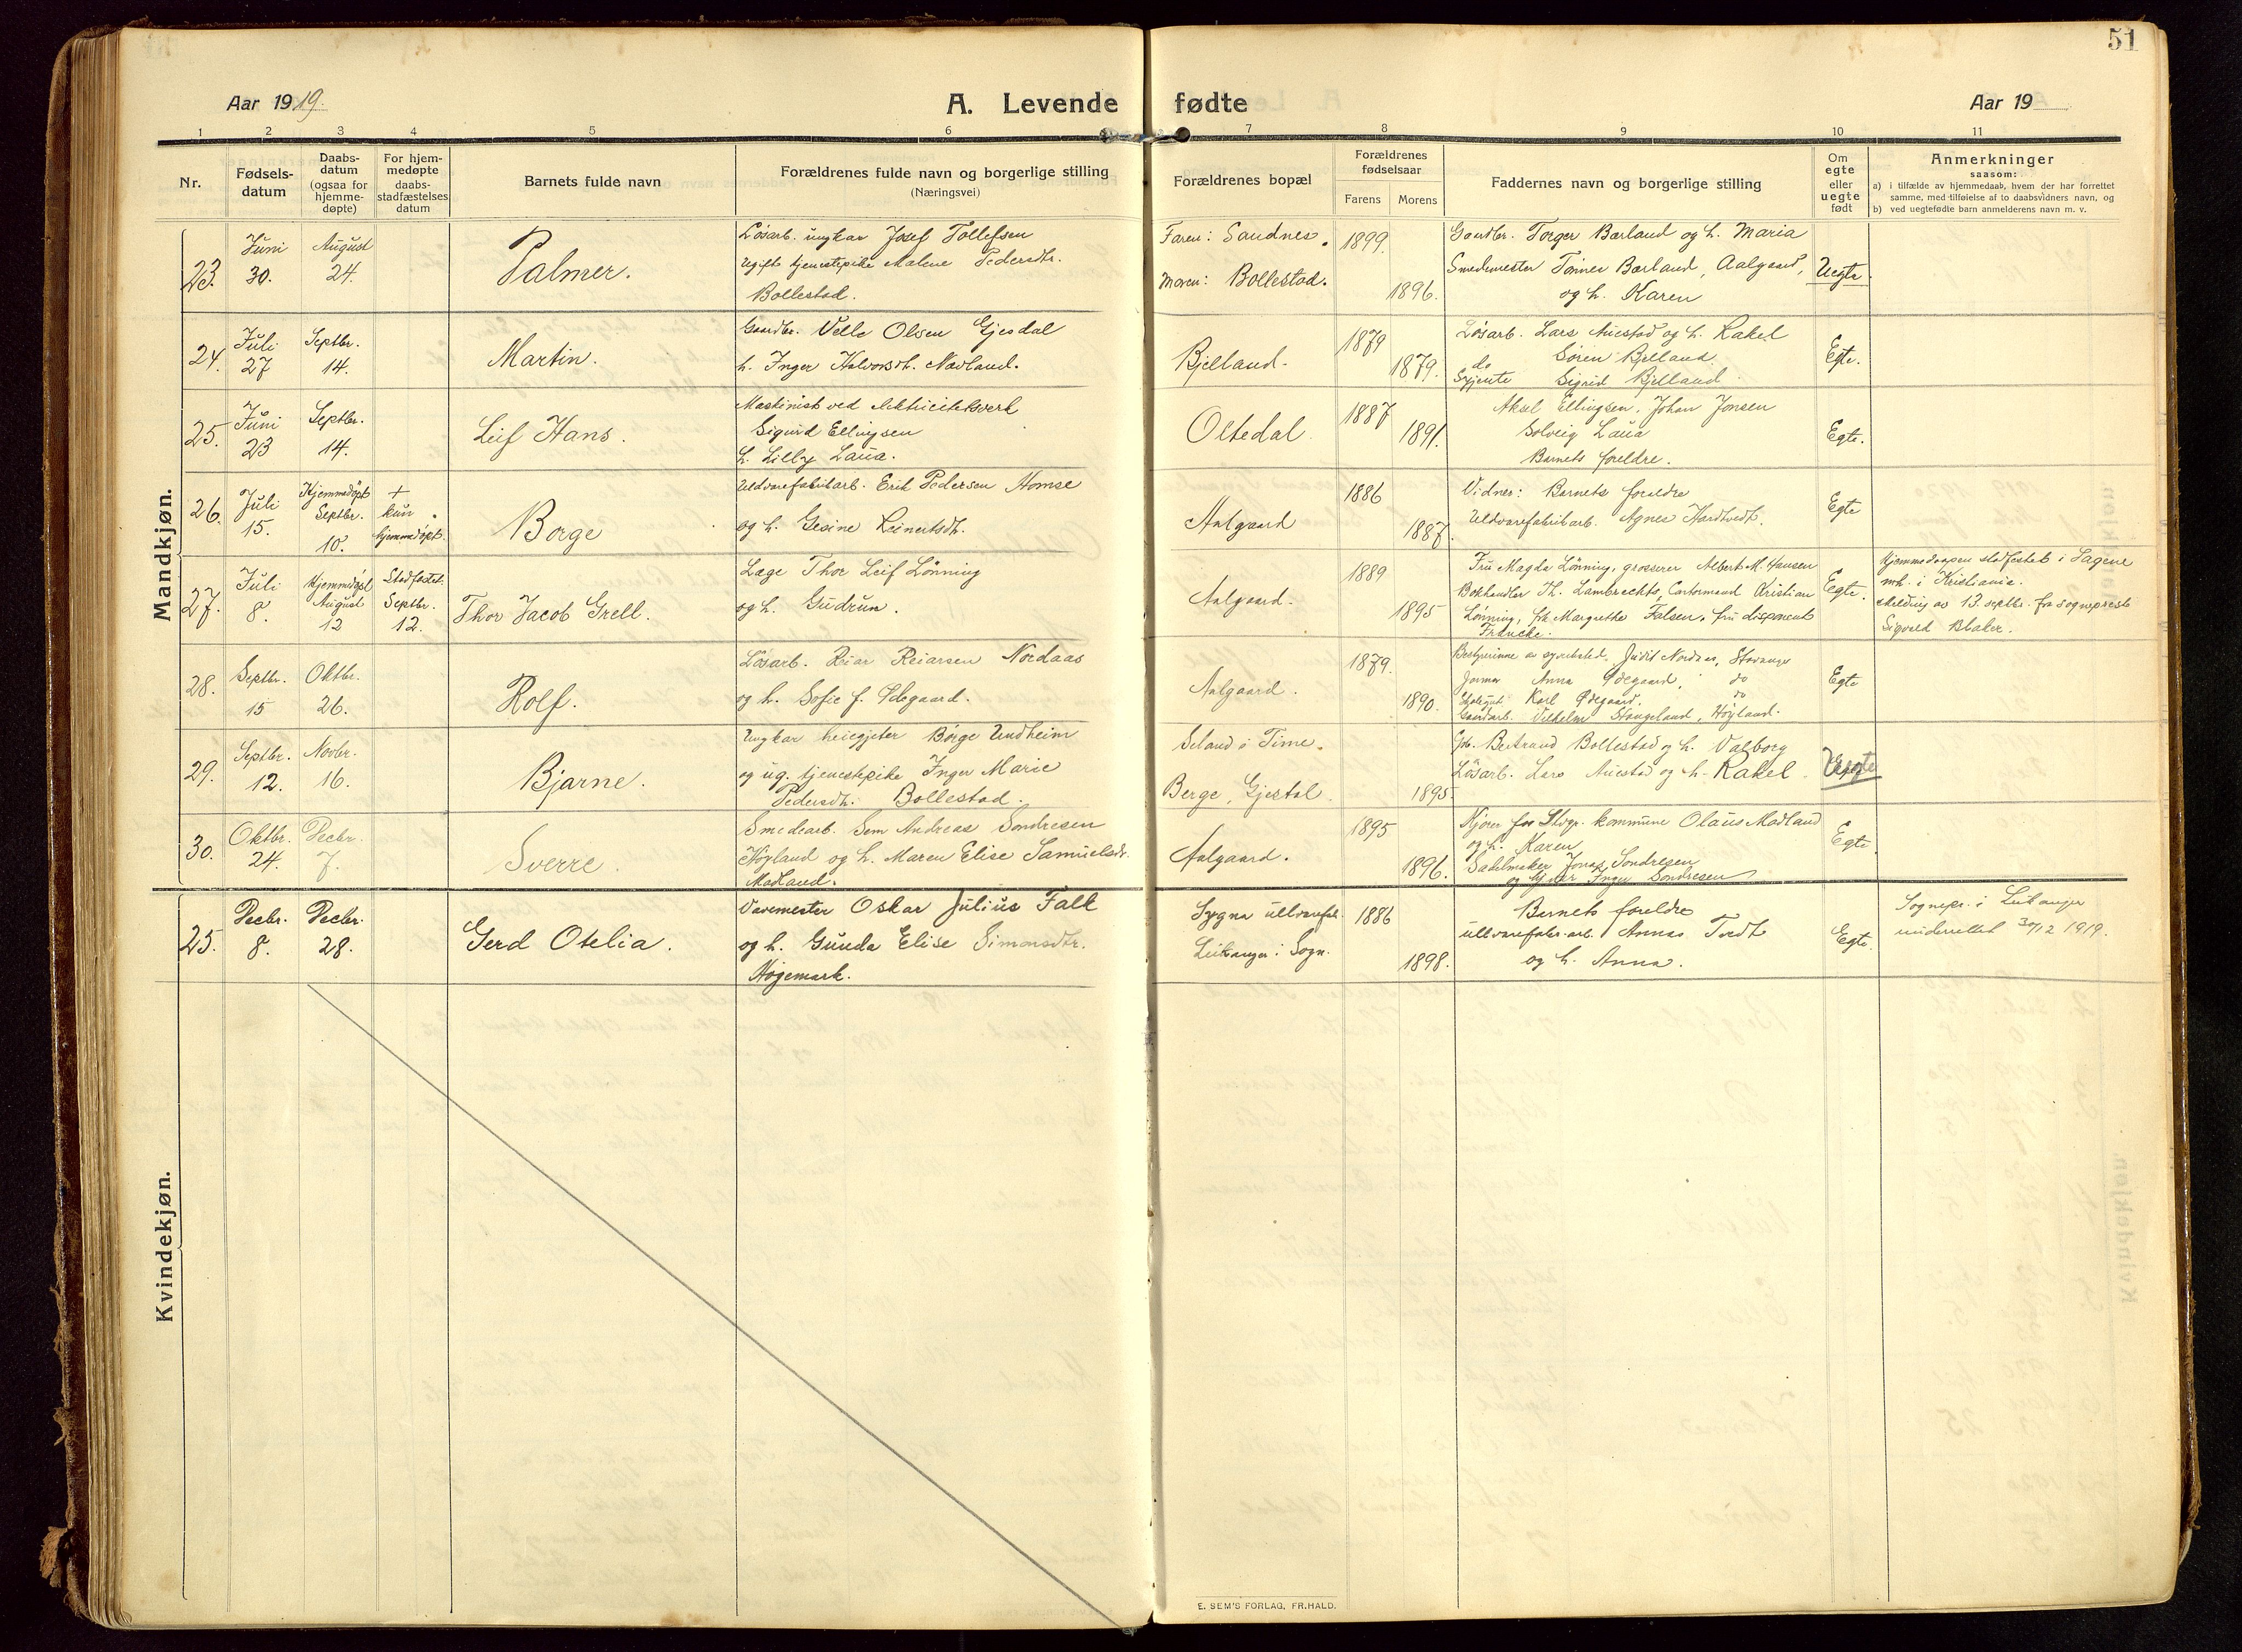 51
Aar 1919.
A. Levende fødte
Aar 19
1 2 3 4 5 6 7 8 9 10 11
Nr.
Fødsels-
datum
Daabs-
datum
(ogsaa for
hjemme-
døpte)
For hjem-
medøpte
daabs-
stadfæstelses
datum
Barnets fulde navn
Forældrenes fulde navn og borgerlige stilling
(Næringsvei)
Forældrenes bopæl
Forældrenes
fødselsaar
Farens Morens
Faddernes navn og borgerlige stilling
Om
egte
eller
uegte
født
Anmerkninger
saasom:
a) i tilfælde av hjemmedaab, hvem der har forrettet
samme, med tilføielse af to daabsvidners navn, og
b) ved uegtefødte barn anmelderens navn m. v.
Mandkjøn.
23.
Juni
30.
August
24.
Palmer.
Lösarb. ungkar Josef Tollefsen
Ugift tjenestepike Malene Pedersdtr.
Bollestad.
Faren: Sandnes.
Moren: Bollestad.
1899.
1896.
Gaardbr. Torger Bærland og h. Maria
Smedemester Tönnes Bærland, Aalgaard,
og h. Karen
Uegte.
24.
Juli
27
Septbr.
14.
Martin.
Gaardbr. Velle Olsen Gjesdal
h. Inger Halvorsdt. Nævland.
Bjelland.
1879
1879.
Lösarb. Lars Auestad og h. Rakel
do Sören Bjelland.
Sigrid Bjelland
Egte.
25.
Juni
23
Septbr.
14.
Leif Hans.
Maskinist ved elektricitetsverk
Sigurd Ellingsen
h. Lilly Laua.
Oltedal
1887
1891.
Aksel Ellingsen, Johan Jonsen
Solveig Laua
Barnets foreldre.
Egte.
26.
Juli
15.
Hjemmedöpt
Septbr.
10.
+
kun
hjemmedöpt.
Borge
Uldvarefabrikarb. Erik Pedersen Homse
og h. Gesine Leinertsdt.
Aalgaard
1886
1887.
Vidner: Barnets foreldre
Uldvarefabrikarb. Agnes Hardtvedt.
Egte
27.
Juli
8.
Hjemmdöpt
August
12
Stadfestet:
Septbr.
12.
Thor Jacob Grell.
Læge Thor Leif Lönning
og h. Gudrun.
Aalgaard.
1889
1895
Fru Magda Lönning, grosserer Albert M. Hansen
Bokhandler Th. Lambrechts, Cartormand Kristian
Lönning, frk Margrethe Falsen, fru disponent
Francke.
Egte.
Hjemmedaapen stadfestet i Sagene
mh. i Kristiania.
Melding av 13. septbr. fra sogneprest
Sigvald Blaker.
28.
Septbr.
15
Oktbr.
26.
Rolf.
Lösarb. Reiar Reiarsen Nordaas
og h. Sofie f. Ödegaard.
Aalgaard.
1879.
1890.
Bestyrerinne av syverksted, Judit Nordaas, Stavanger
Anna Ödegaard, do
Karl Ödegaard, do
Gaardarb. Vilhelm Stangeland, Höyland.
Egte
29.
Septbr.
12.
Novbr.
16.
Bjarne.
Ungkar heiegjeter Börge Undheim
og ug. tjenestepike Inger Marie
Pedersdt. Bollestad.
Seland i Time.
Berge, Gjestal
1895
Gb. Bertrand Bollestad og h. Valborg
Lösarb. Lars Auestad og h. Rakel.
Uegte
30.
Oktbr.
24.
Decbr.
7.
Sverre.
Smedearb. Sem Andreas Sondresen
Höyland og h. Maren Elise Samuelsdr.
Madland.
Aalgaard.
1895
1896.
Kjører for Stvgr. kommune Olaus Madland
og h. Karen
Sadelmaker Jonas Sondresen
og Inger Sondresen
Egte.
Kvindekjøn.
25.
Decbr.
8.
Decbr.
28.
Gerd Otelia.
Vævemester Oskar Julius Falk
og h. Gunda Elise Simonsdtr.
Högemark.
Sygna ullvarefab.
Leikanger i Sogn.
1886
1898.
Barnets foreldre
ullvarefabr. arb. Annas Tvedt
og h. Anna.
Egte.
Sognepr. i Leikanger
underrettet 30/12 1919.
E. SEM'S FORLAG, FR.HALD.